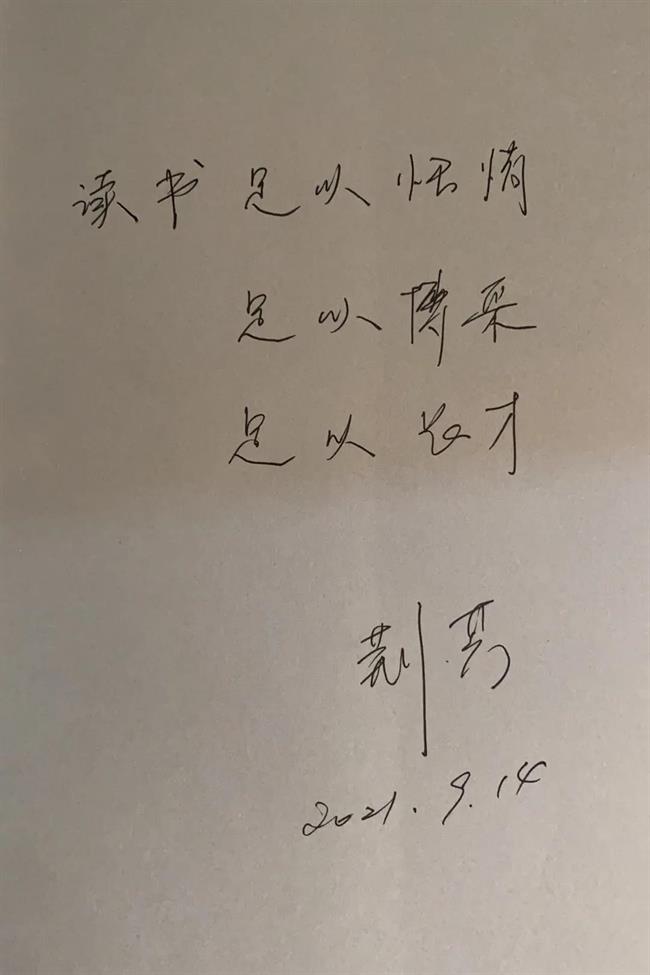 读书足以怡情
足以博采
足以长才
2021.9.14